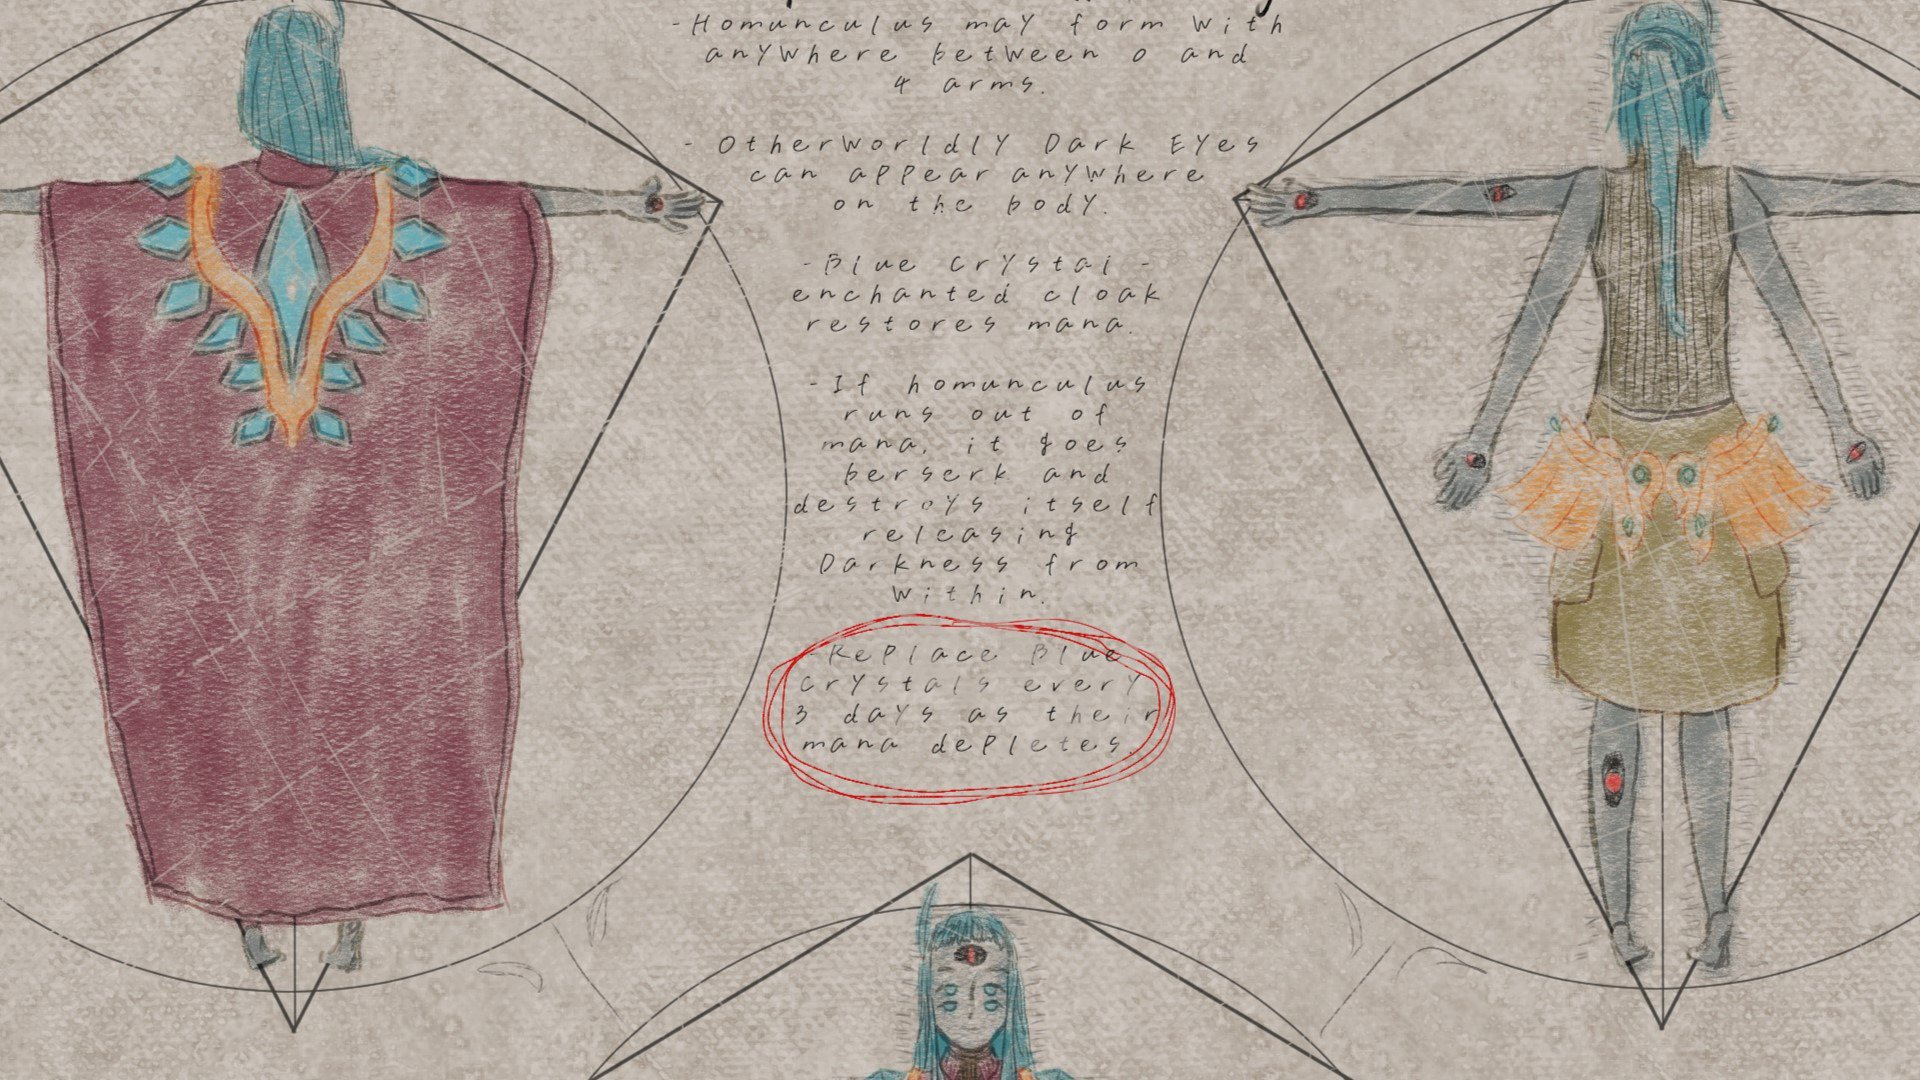 -Homunculus may form with
anywhere between 0 and
4 arms.
- Otherworldly Dark Eyes
can appear anywhere
on the body.
-Blue crystal -
enchanted cloak
restores mana.
-If homunculus
runs out of
mana, it goes
berserk and
destroys itself
releasing
Darkness from
within.
-Replace Blue
crystals every
3 days as their
mana depletes.